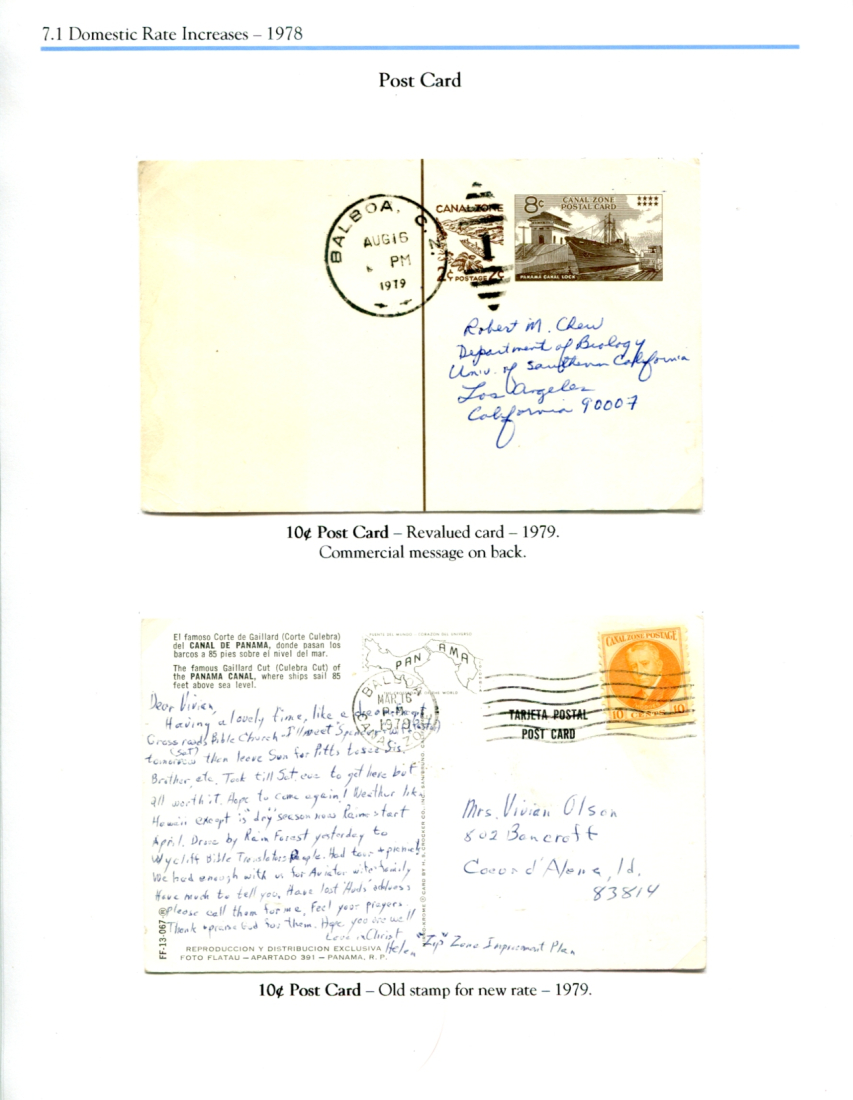 7.1 Domestic Rate Increases – 1978
Post Card
BALBOA, C. Z.
AUG 16
PM
1979
CANAL ZONE
2¢ POSTAGE 2¢
8¢ CANAL ZONE
POSTAL CARD
PANAMA CANAL LOCK
1
Robert M. Chew
Department of Biology
Univ. of Southern California
Los Angeles
California 90007
10¢ Post Card – Revalued card – 1979.
Commercial message on back.
El famoso Corte de Gaillard (Corte Culebra)
del CANAL DE PANAMA, donde pasan los
barcos a 85 pies sobre el nivel del mar.
The famous Gaillard Cut (Culebra Cut) of
the PANAMA CANAL, where ships sail 85
feet above sea level.
PUENTE DEL MUNDO - CORAZON DEL UNIVERSO
PANAMA
MAR 16
1979
CANAL ZONE POSTAGE
10 CENTS 10
TARJETA POSTAL
POST CARD
Dear Vivian,
Having a lovely time, like a
Crossroads Bible Church I'll meet
(Sat)
tomorrow then leave Sun for Pitts to see Sis,
Brother, etc. Took till Sat. eve to get here but
all worth it. Hope to come again! Weather like
Hawaii except is "dry" season now Rains start
April. Drove by Rain Forest yesterday to
Wycliff Bible Translators People. Had tour +
We had enough with us for Aviator wife + family
Have much to tell you. Have lost address
please call them for me, Feel your prayers.
Thank + praise God for them. Hope you are well
Love in Christ
Helen
"Zip" Zone Improvement Plan
Mrs. Vivian Olson
802 Bancroft
Coeur d'Alene, Id.
83814
FF-13-067
REPRODUCCION Y DISTRIBUCION EXCLUSIVA
FOTO FLATAU — APARTADO 391 — PANAMA, R. P.
10¢ Post Card – Old stamp for new rate – 1979.